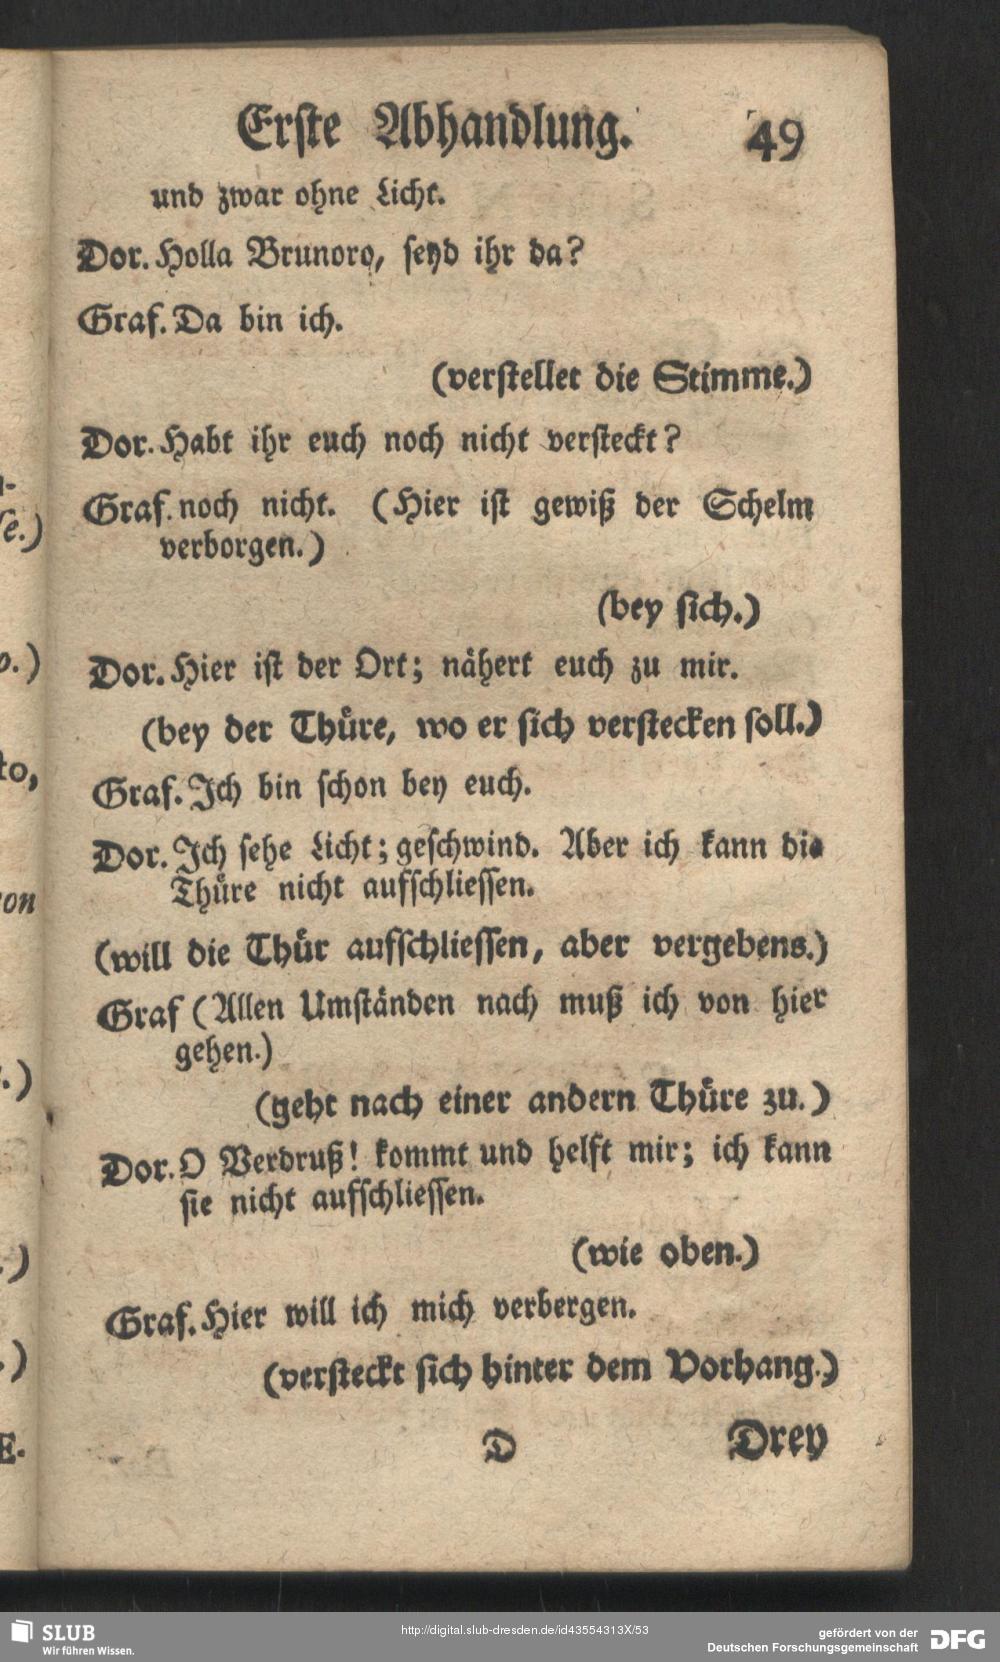 Erste Abhandlung. 49
und zwar ohne Licht.
Dor. Holla Brunoro, seyd ihr da?
Graf. Da bin ich.
(verstellet die Stimme.)
Dor. Habt ihr euch noch nicht versteckt?
Graf. noch nicht. (Hier ist gewiß der Schelm
verborgen.)
(bey sich.)
Dor. Hier ist der Ort; nähert euch zu mir.
(bey der Thüre, wo er sich verstecken soll.)
Graf. Ich bin schon bey euch.
Dor. Ich sehe Licht; geschwind. Aber ich kann die
Thüre nicht aufschliessen.
(will die Thür aufschliessen, aber vergebens.)
Graf (Allen Umständen nach muß ich von hier
gehen.)
(geht nach einer andern Thüre zu.)
Dor. O Verdruß! kommt und helft mir; ich kann
sie nicht aufschliessen.
(wie oben.)
Graf. Hier will ich mich verbergen.
(versteckt sich hinter dem Vorhang.)
D Drey
SLUB
Wir führen Wissen.
http://digital.slub-dresden.de/id43554313X/53
gefördert von der
Deutschen Forschungsgemeinschaft
DFG